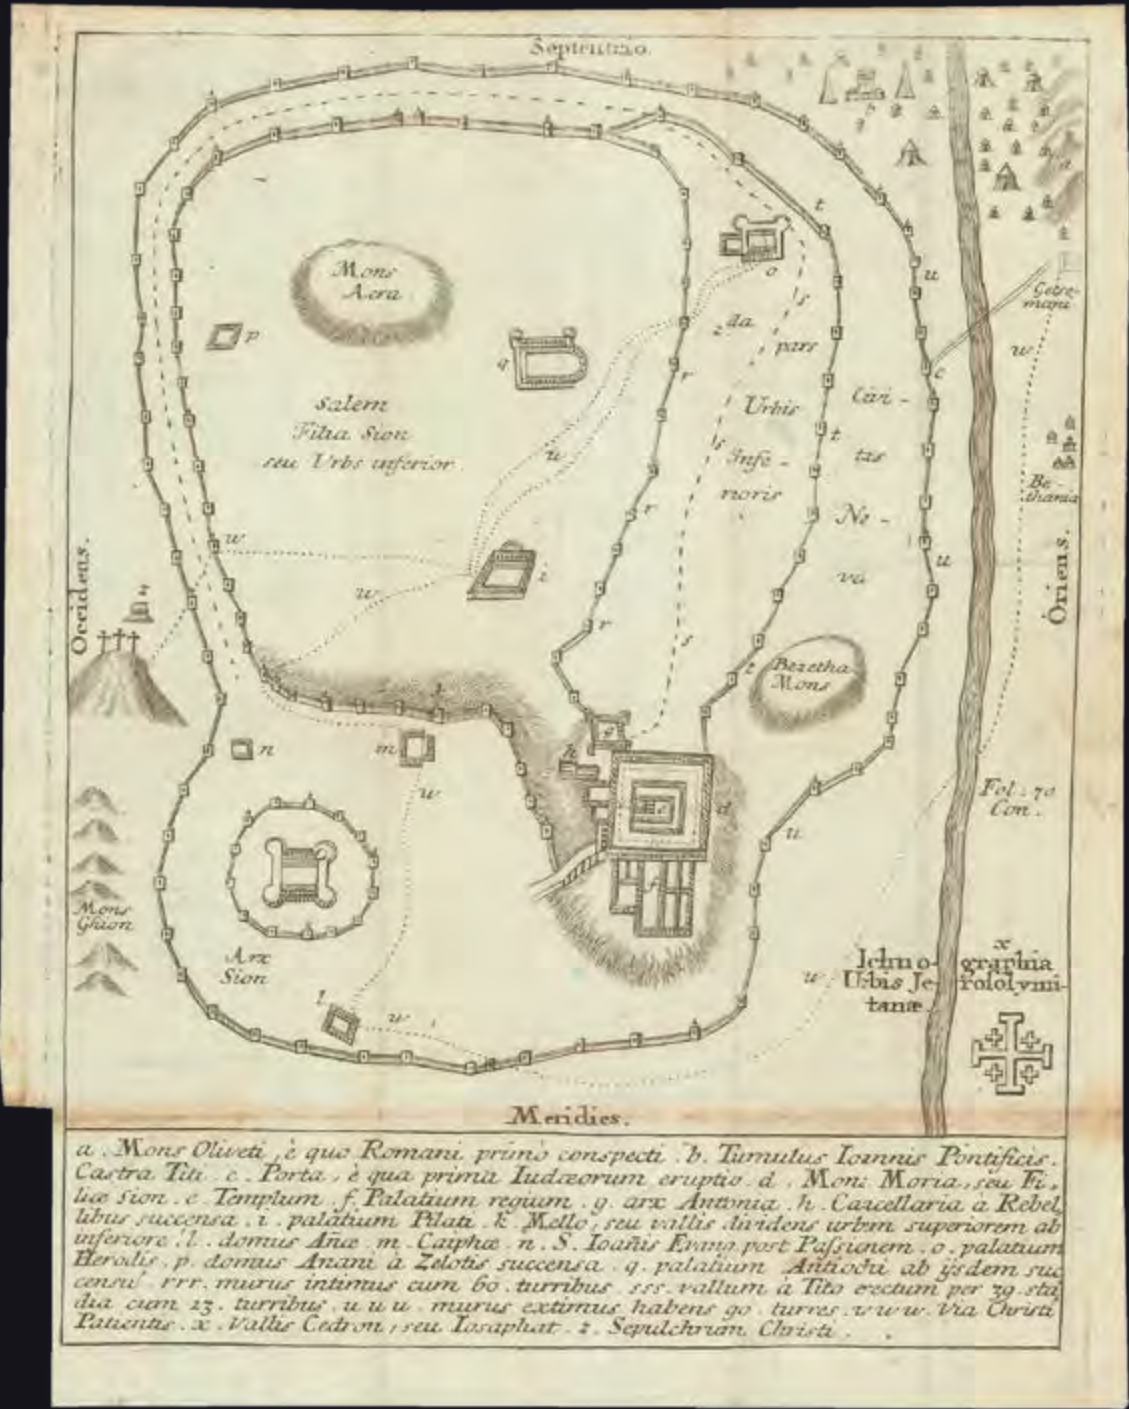 Septentrio.
a
b
Mons
Acra
t
o
u
p
q
s
2 da
pars
r
c
Getse-
mani
w
Salem
Filia Sion
seu Urbs inferior
Urbis
Civi-
s
t
Infe-
tas
rioris
Be-
thania
w
r
No-
w
u
i
va
Occidens.
Oriens.
w
z
r
s
t
Bezetha
Mons
n
m
g
h
w
e
d
Fol: 70
Con.
f
u
Mons
Ghion
Arx
Sion
x
Ichno-graphia
Urbis Je-rosolymi-
tanæ.
w
l
w
Meridies.
a. Mons Oliveti, è quo Romani primò conspecti. b. Tumulus Ioannis Pontificis.
Castra Titi. c. Porta, è qua prima Iudæorum eruptio. d. Mons Moria, seu Fi,
liæ sion. e Templum. f. Palatium regium. g. arx Antonia. h. Cancellaria à Rebel,
libus succensa. i. palatium Pilati. k. Mello, seu vallis dividens urbem superiorem ab
inferiore. l. domus Añæ. m. Caiphæ. n. S. Ioañis Evang. post Passionem. o. palatium
Herodis. p. domus Anani à Zelotis succensa. q. palatium Antiochi ab ijsdem suc
censũ. rrr. murus intimus cum 60. turribus. sss. vallum à Tito erectum per 39. sta
dia cum 13. turribus. u u u. murus extimus habens 90. turres. w w w. Via Christi
Patientis. x. Vallis Cedron, seu Iosaphat. z. Sepulchrum Christi.